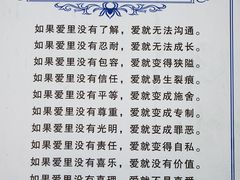 如果爱里没有了解，爱就无法沟通。
如果爱里没有忍耐，爱就无法成长。
如果爱里没有包容，爱就变得狭隘。
如果爱里没有信任，爱就易生裂痕。
如果爱里没有平等，爱就变成施舍。
如果爱里没有尊重，爱就变成专制。
如果爱里没有光明，爱就变成罪恶。
如果爱里没有责任，爱就变得自私。
如果爱里没有喜乐，爱就没有价值。
如果爱里没有真理，爱就不是真爱